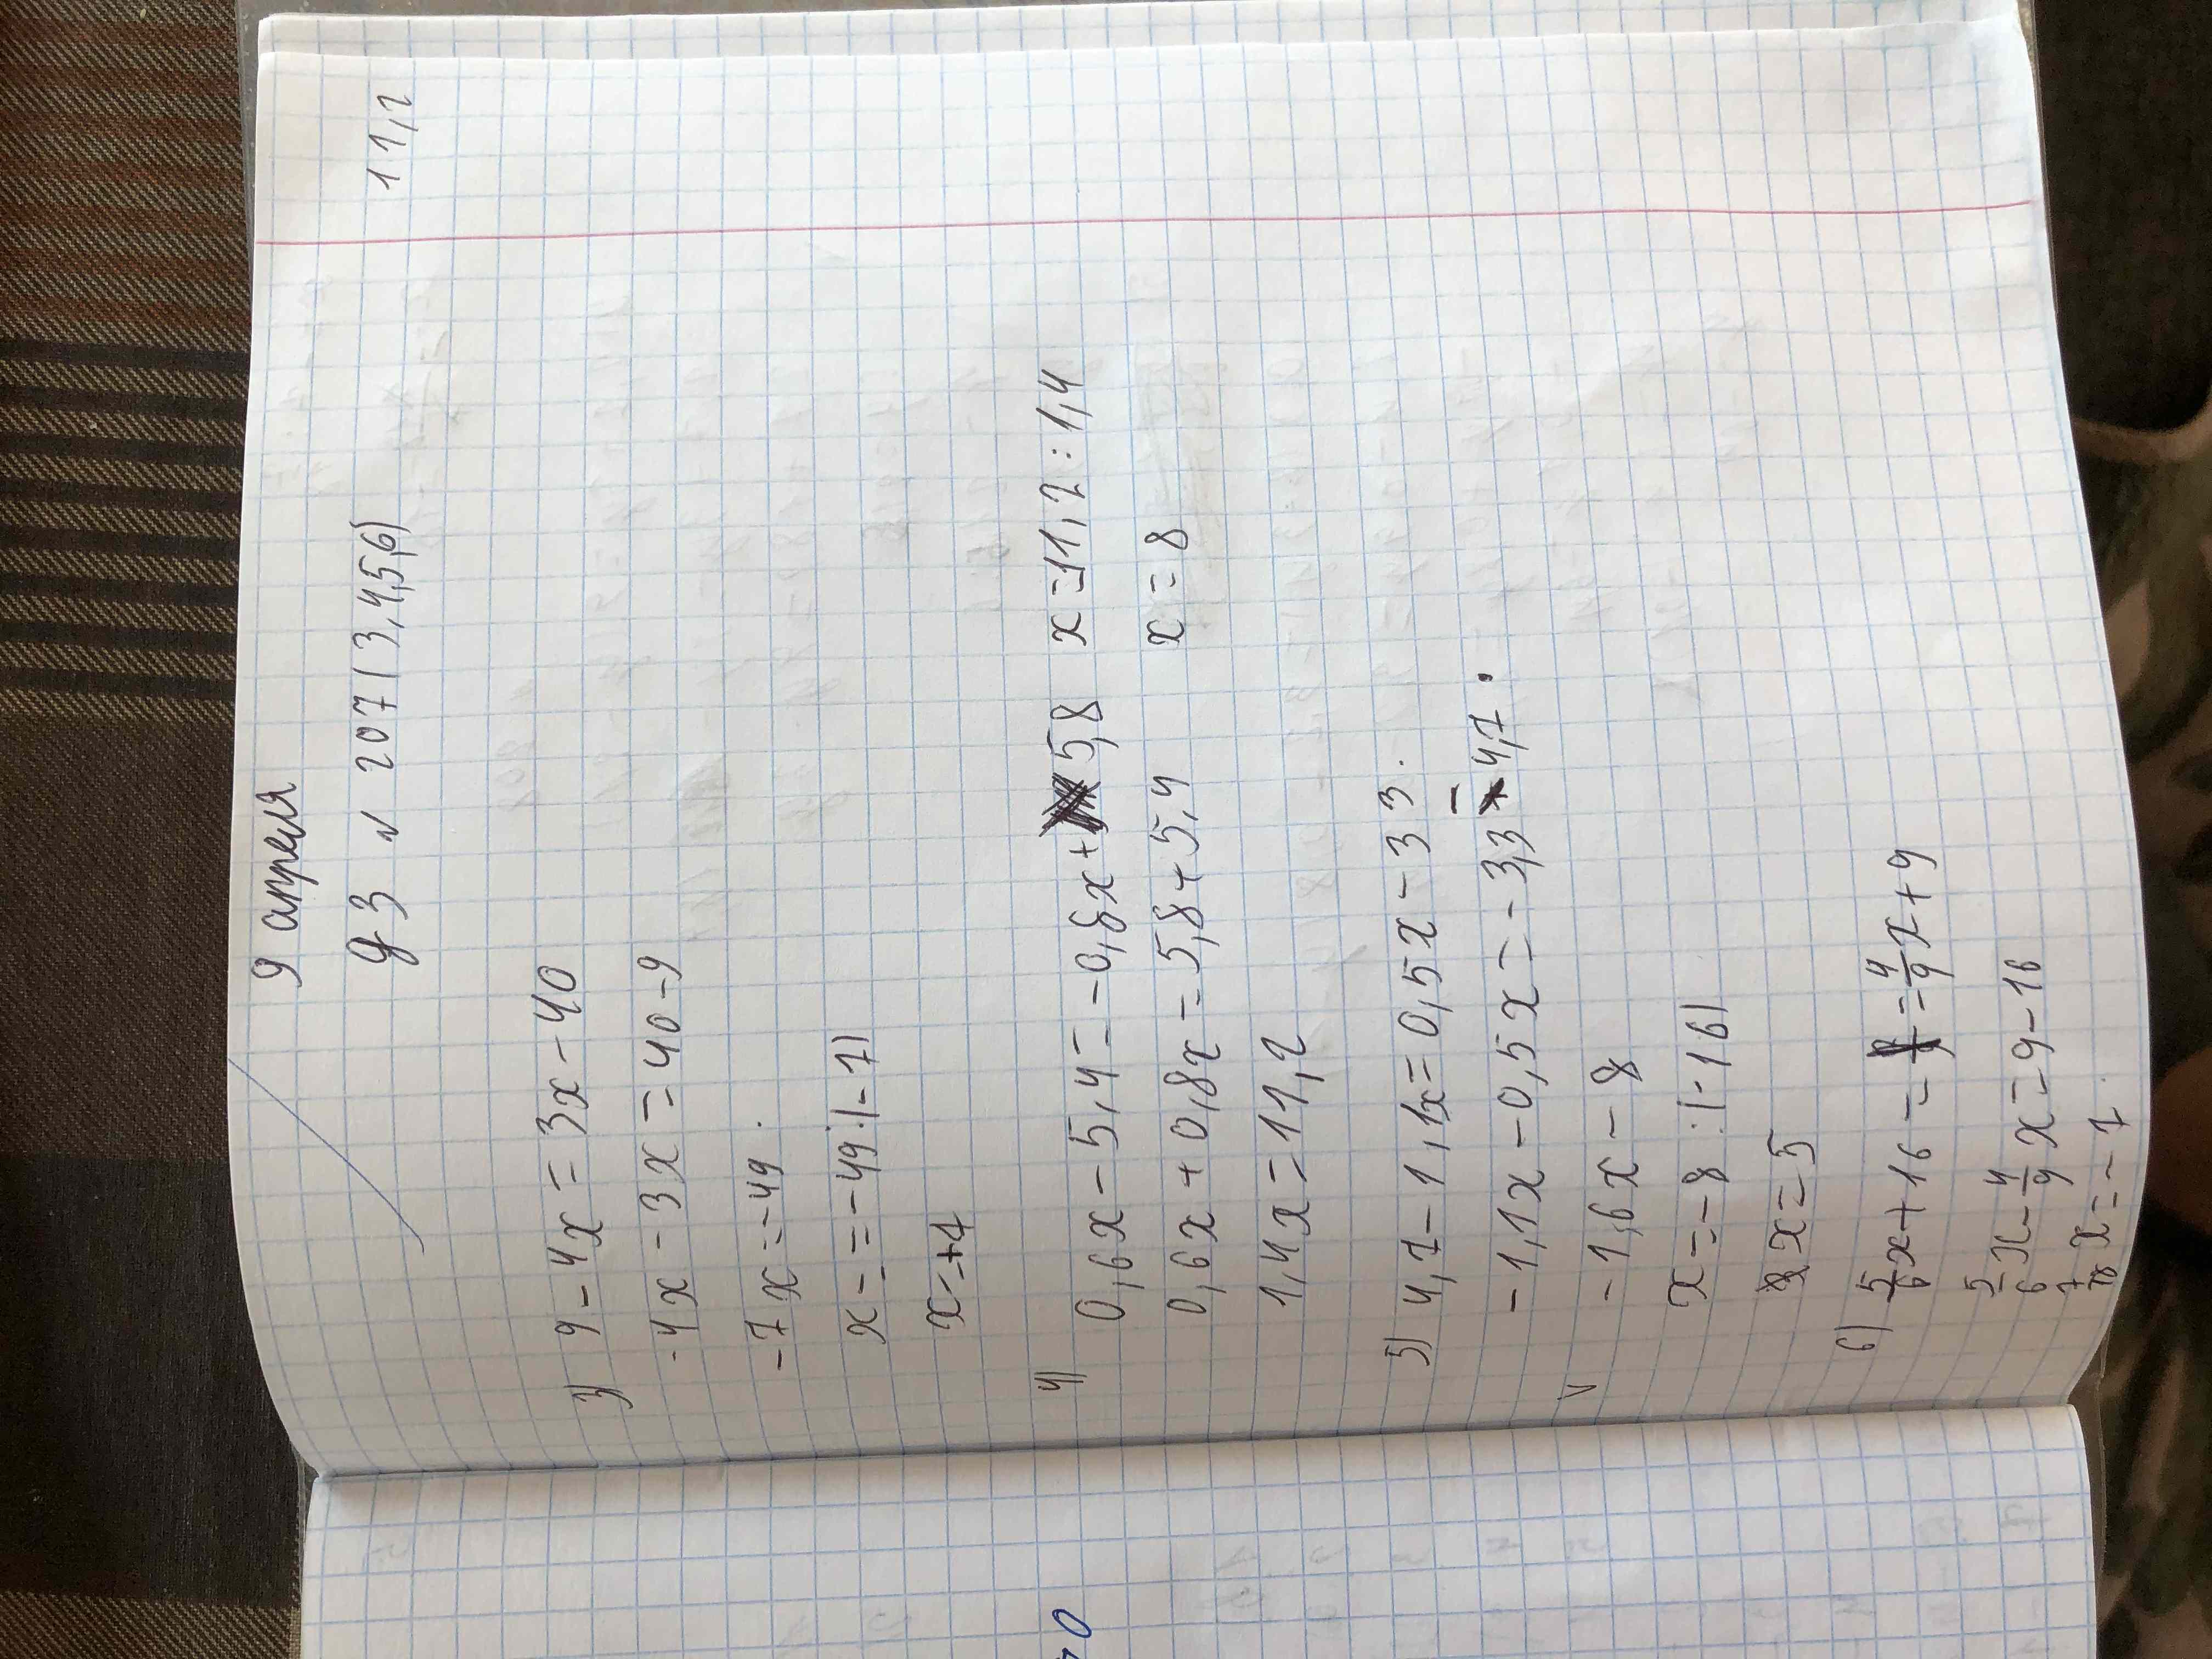 9 апреля
дз № 207 (3,4,5,6) 11,2
3) 9 - 4x = 3x - 40
-4x - 3x = 40 - 9
-7x = -49.
x = = -49 : (-7)
x = +7
4)
0,6x - 5,4 = -0,8x + 5,8 x = 11,2 : 1,4
0,6x + 0,8x = 5,8 + 5,4 x = 8
1,4x = 11,2
5) 4,7 - 1,1x = 0,5x - 3 3.
-1,1x - 0,5x = -3,3 - 4,7.
-1,6x - 8
x = -8 : (-1 6)
x = 5
6) 5/6 x + 16 = = 4/9 x + 9
5/6 x - 4/9 x = 9 - 16
7/18 x = -7.